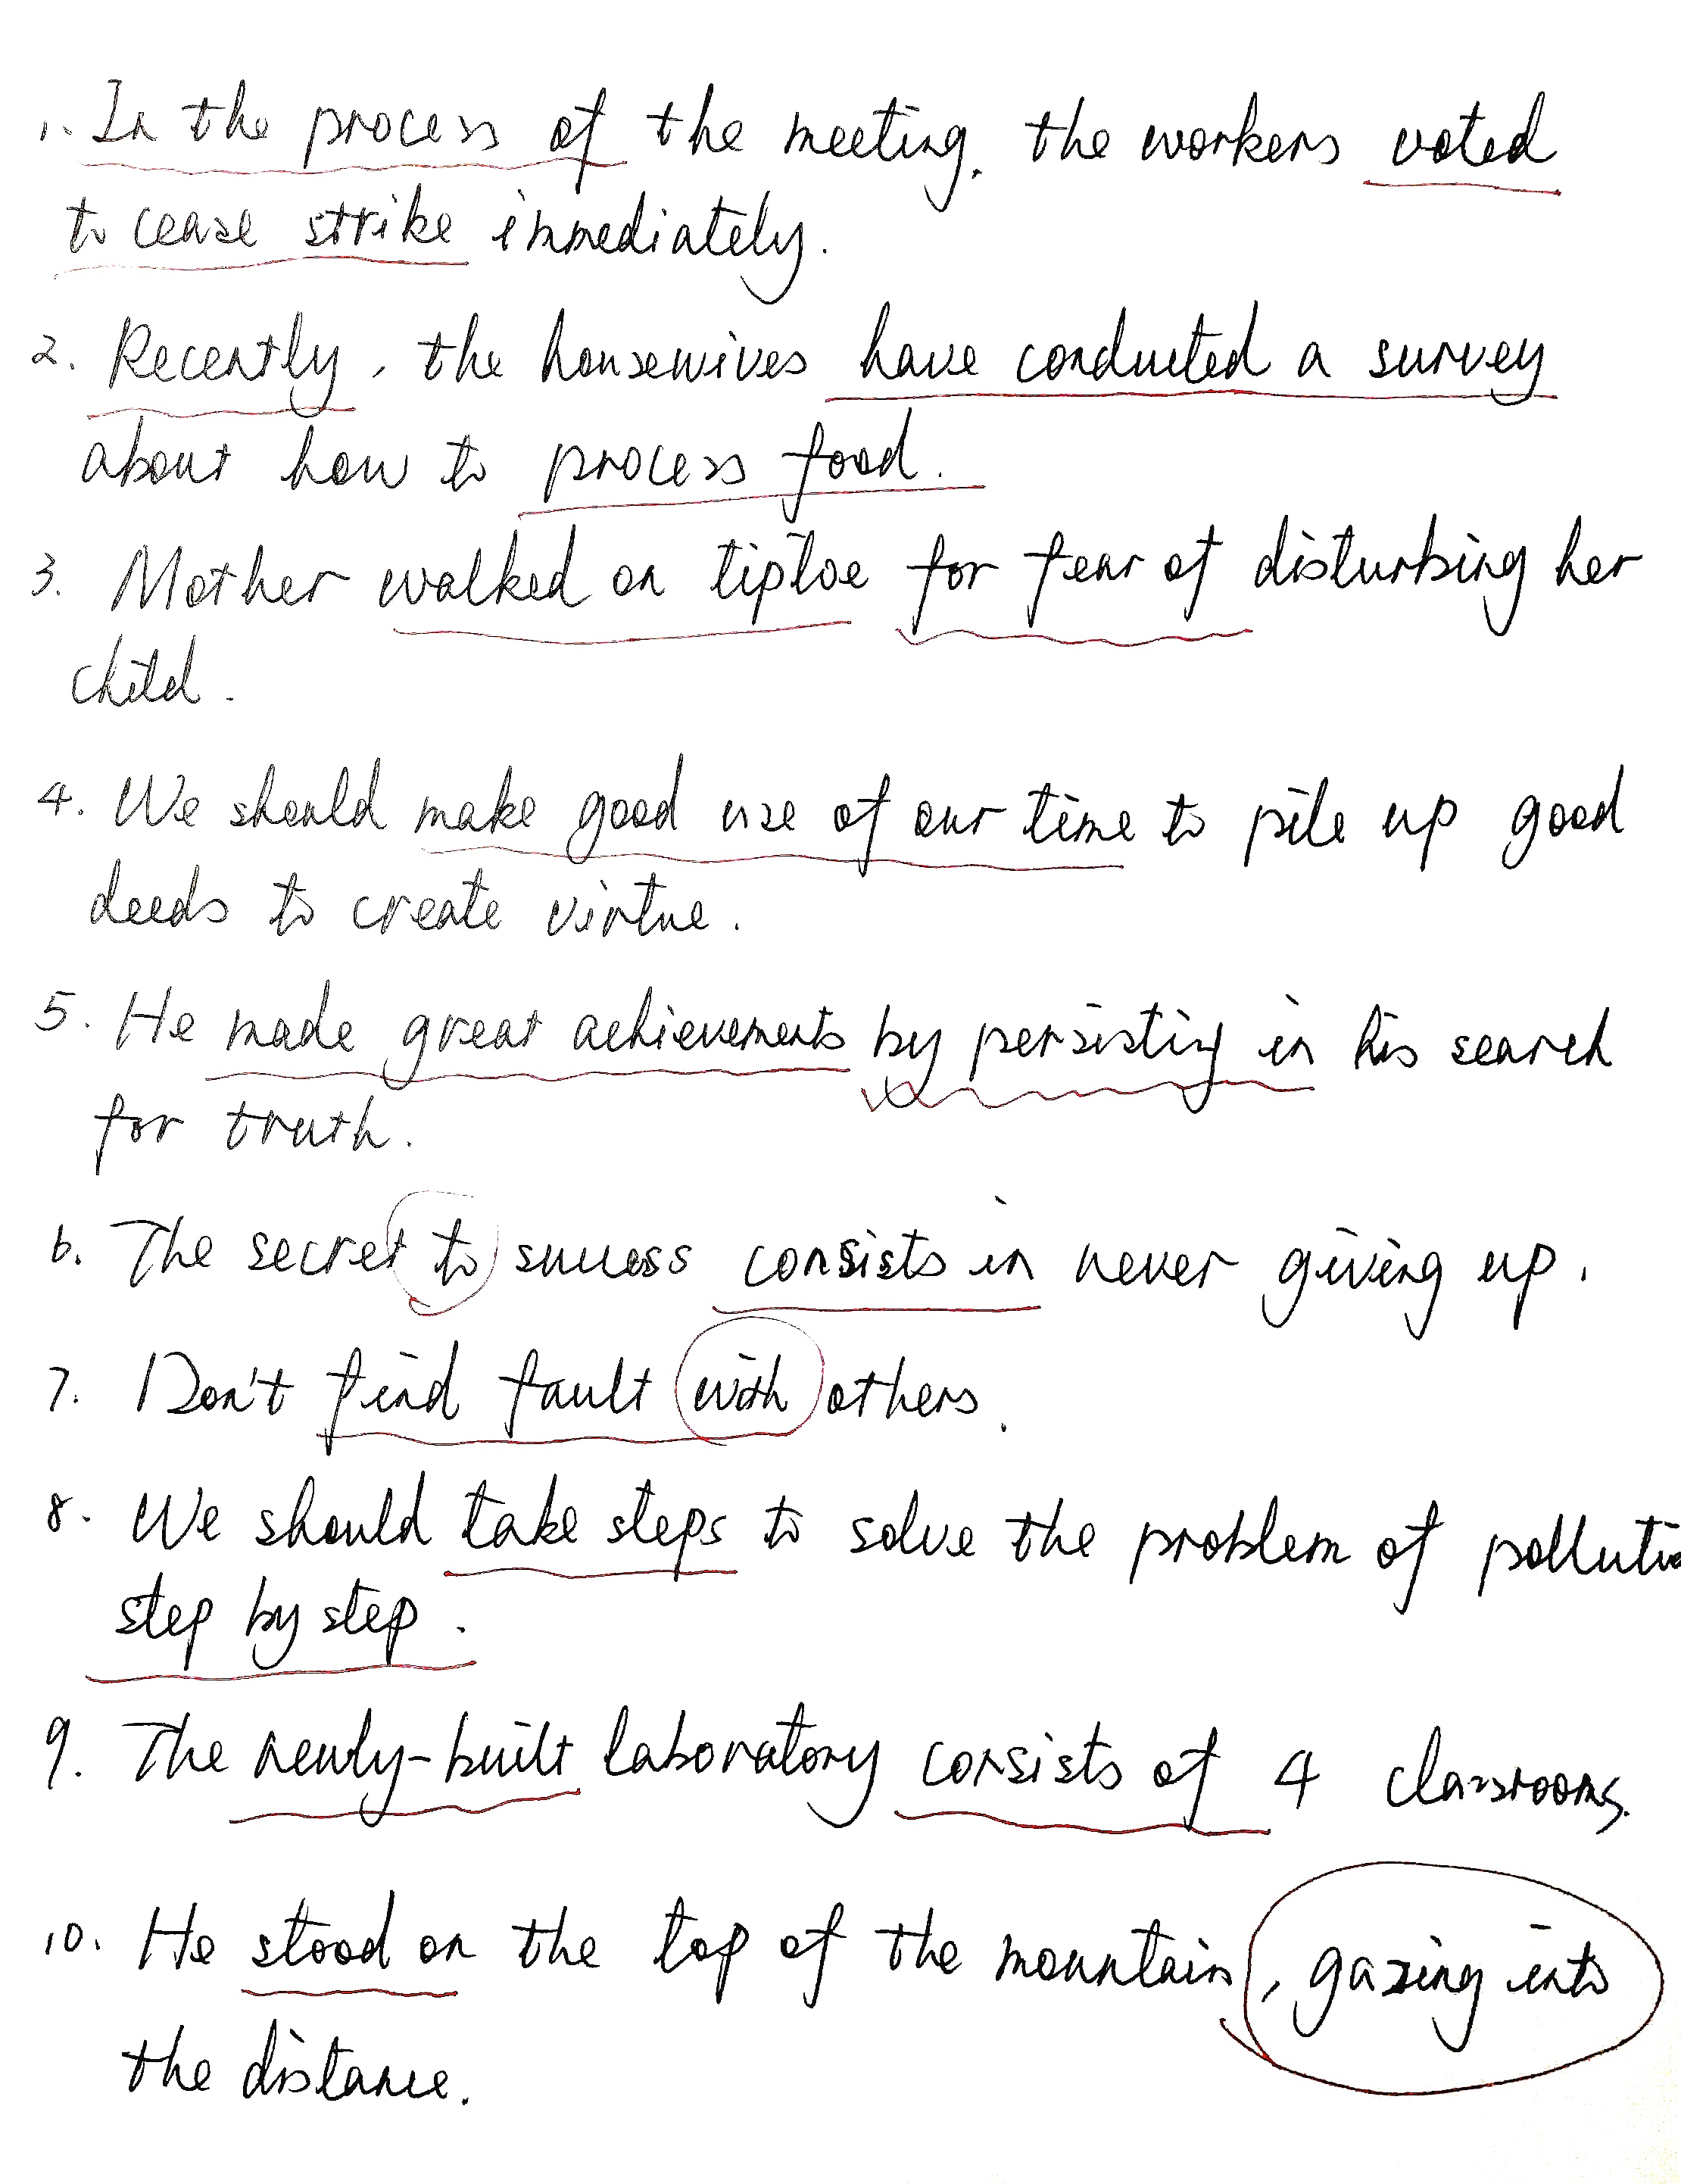 1. In the process of the meeting, the workers voted
to cease strike immediately.
2. Recently, the housewives have conducted a survey
about how to process food.
3. Mother walked on tiptoe for fear of disturbing her
child.
4. We should make good use of our time to pile up good
deeds to create virtue.
5. He made great achievements by persisting in his search
for truth.
6. The secret to success consists in never giving up.
7. Don't find fault with others.
8. We should take steps to solve the problem of pollutio
step by step.
9. The newly-built laboratory consists of 4 classrooms.
10. He stood on the top of the mountain, gazing into
the distance.